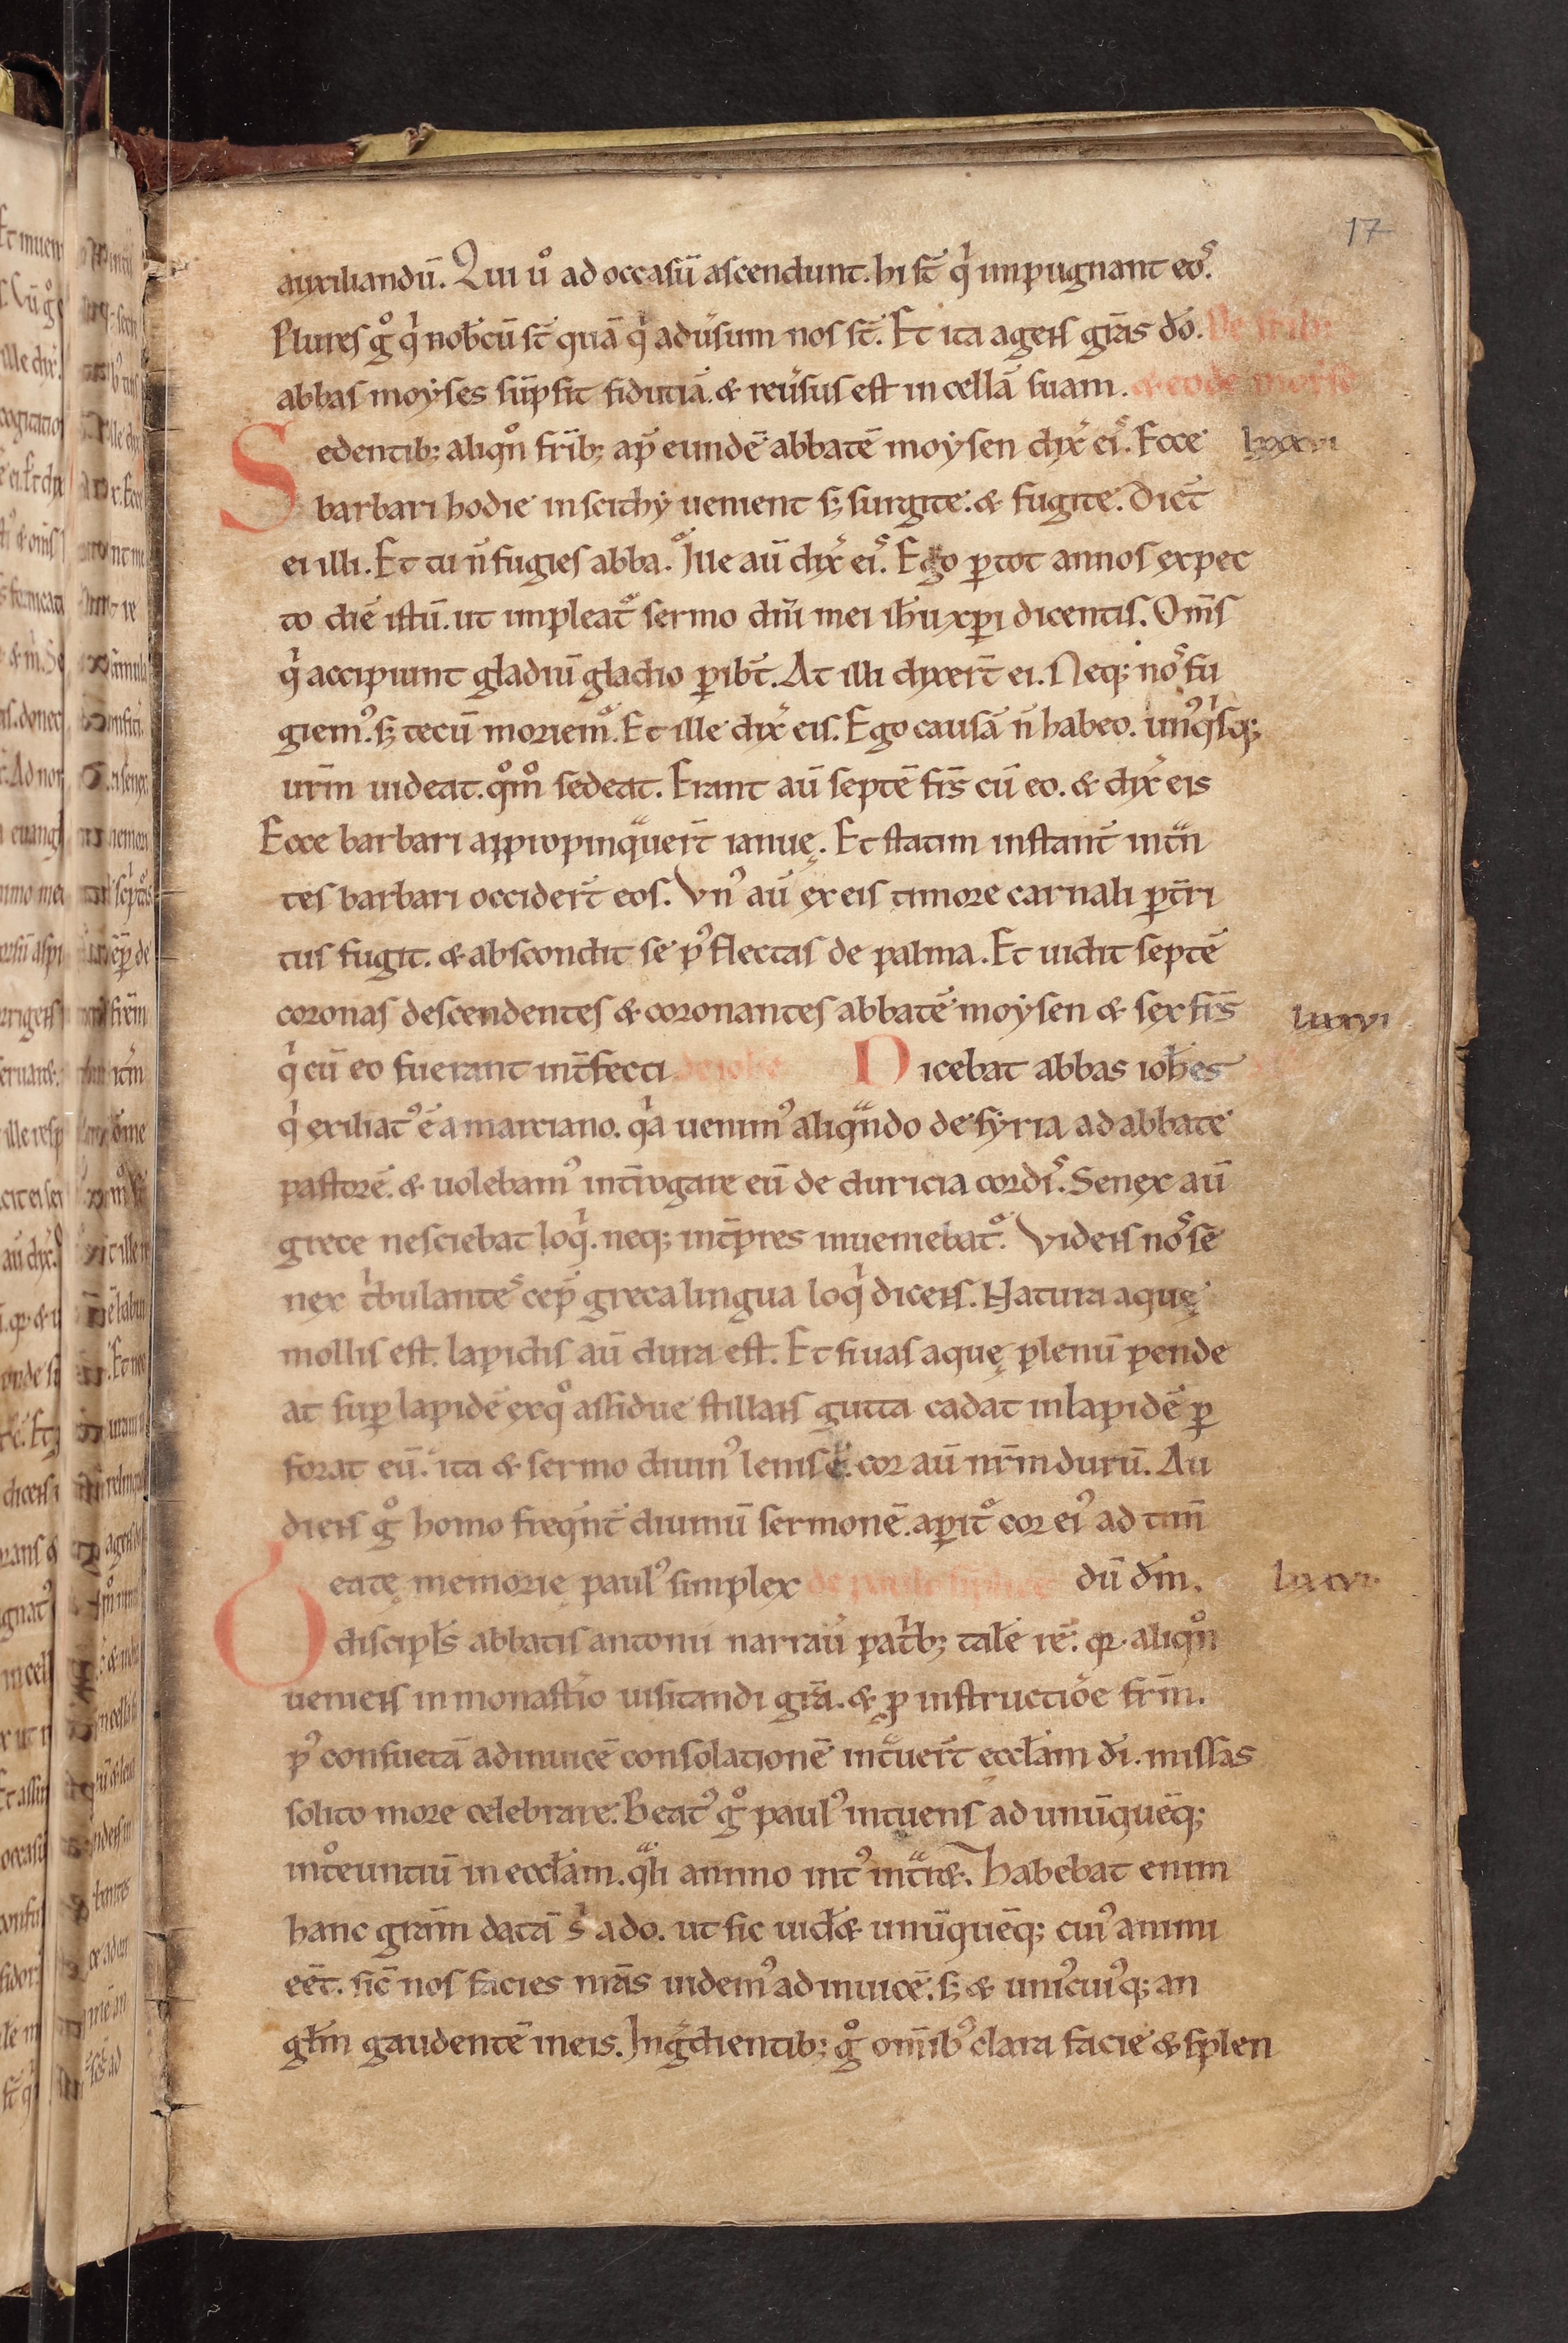 17
auxiliandū. Qui ů ad occasū ascendunt. hi st̄ qͥ impugnant eoˢ.
Plures gͦ qͥ nob̄cū st̄ quā qͥ adúsum nos st̄. Et ita agens grās dō. De frīb;
abbas moyses sūpsit fidutiā. & reúsus est in cellā suam. & eodē moysē
Sedentib; aliqn̊ frīb; ap̄ eundē abbatē moysen dix̄ eiˢ. Ecce lxxxvi
barbari hodie in scithy uenient s; surgite. & fugite. Dict̄
ei illi. Et tu n̄ fugies abba. Ille aū dix̄ eiˢ. Ego ꝑ tot annos expec
to diē istū. ut impleat᷑ sermo dn̄i mei ihu xp̄i dicentis. Om̄s
qͥ accipiunt gladiū gladio ꝑibt̄. At illi dixert̄ ei. Neq; noˢ fu
giemꝰ. s; tecū moriem᷑. Et ille dix̄ eis. Ego causā n̄ habeo. unꝰqͥsq;
ur̄m uideat. qͦmͦ sedeat. Erant aū septē fr̄s cū eo. & dix̄ eis
Ecce barbari appropinqᵃuert̄ ianuę. Et statim instant̄ intᵃn
tes barbari occidert̄ eos. Vnꝰ aū ex eis timore carnali ꝑtr̄i
tus fugit. & abscondit se pꝰ flectas de palma. Et uidit septē
coronas descendentes & coronantes abbatē moysen & sex fr̄s lxxxvi
qͥ cū eo fuerant int̄fecti de iohe Dicebat abbas ioh̄es
qͥ exiliatꝰ ē a marciano. qͥa uenimꝰ aliqᵃndo de syria ad abbatē
pastorē. & uolebamꝰ int̄rogare eū de duricia cordiˢ. Senex aū
grece nesciebat loqͥ. neq; int̄pres inueniebat᷑. Videns noˢ se
nex tͥbulanteˢ cep̄ greca lingua loqͥ dicens. Natura aquę
mollis est. lapidis aū dura est. Et si uas aquę plenū pende
at suꝑ lapidē ex qͦ assidue stillans gutta cadat in lapidē ꝑ
forat eū. ita & sermo diuinꝰ lenis ē. cor aū nr̄m durū. Au
diens gͦ homo freqn̄t̄ diuinū sermonē. aꝑit᷑ cor eiꝰ ad tim̄
Beatę memorie paulꝰ simplex de paulo simplice dū dm̄. lxxxvi
discipl̄s abbatis antonii narrau̇ patͥb; talē rē. qꝛ aliqn̊
ueniens in monastīo uisitandi grā. & ꝓ instructiōe frm̄.
pꝰ consuetā adinuicē consolationē intᵃuert̄ eccl̄am dī. missas
solito more celebrare. Beatꝰ gͦ paulꝰ intuens ad unūquēq;
intͦeuntiū in eccl̄am. qᵃli animo intꝰ intᵃre&. habebat enim
hanc grām datā s̄ a do. ut sic uid̄& unūquēq; cuiꝰ animi
eēt. sic̄ nos facies nrās uidemꝰ adinuicē. s; & uniꝰcuiꝰq; an
gl̄m gaudentē in eis. Ingᵉdientib; gͦ omīb; clara facie & splen